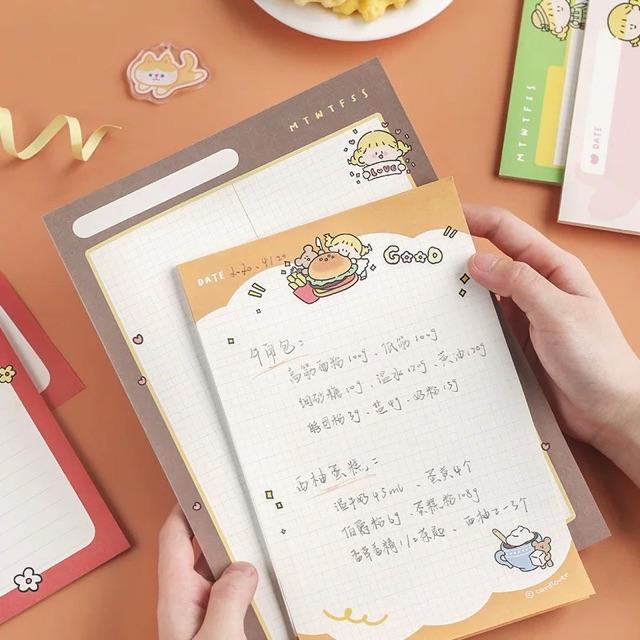 MTWTFSS
LOVE
DATE 2020.4/20
GOOD
牛角包:
高筋面粉100g、低筋100g
细砂糖10g、温水120g、黄油120g
酵母粉3g、盐4g、奶粉15g
西柚蛋糕:
温牛奶45ml、蛋黄4个
伯爵粉6g 蛋糕粉108g
香草香精1/2茶匙、西柚2-3个
© cardlover
MTWTFSS
DATE